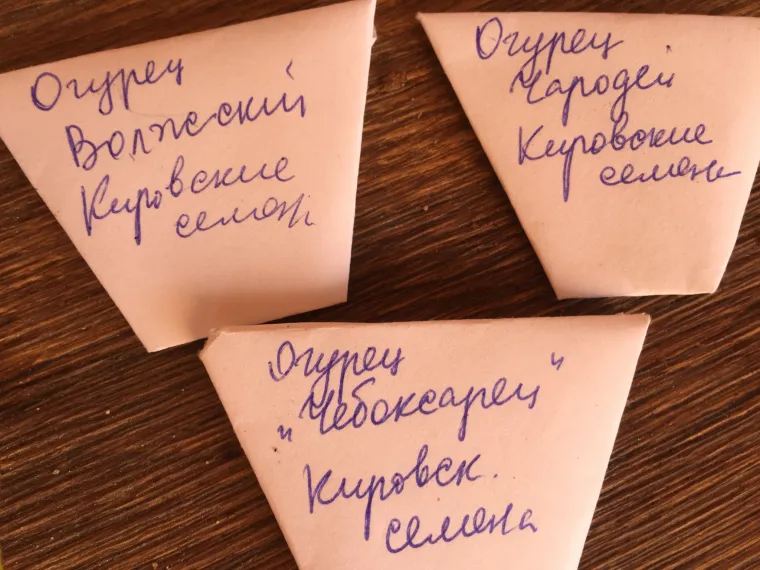 Огурец
Волжский
Кировские
семена
Огурец
Чародей
Кировские
семена
Огурец
„Чебоксарец"
Кировск.
семена